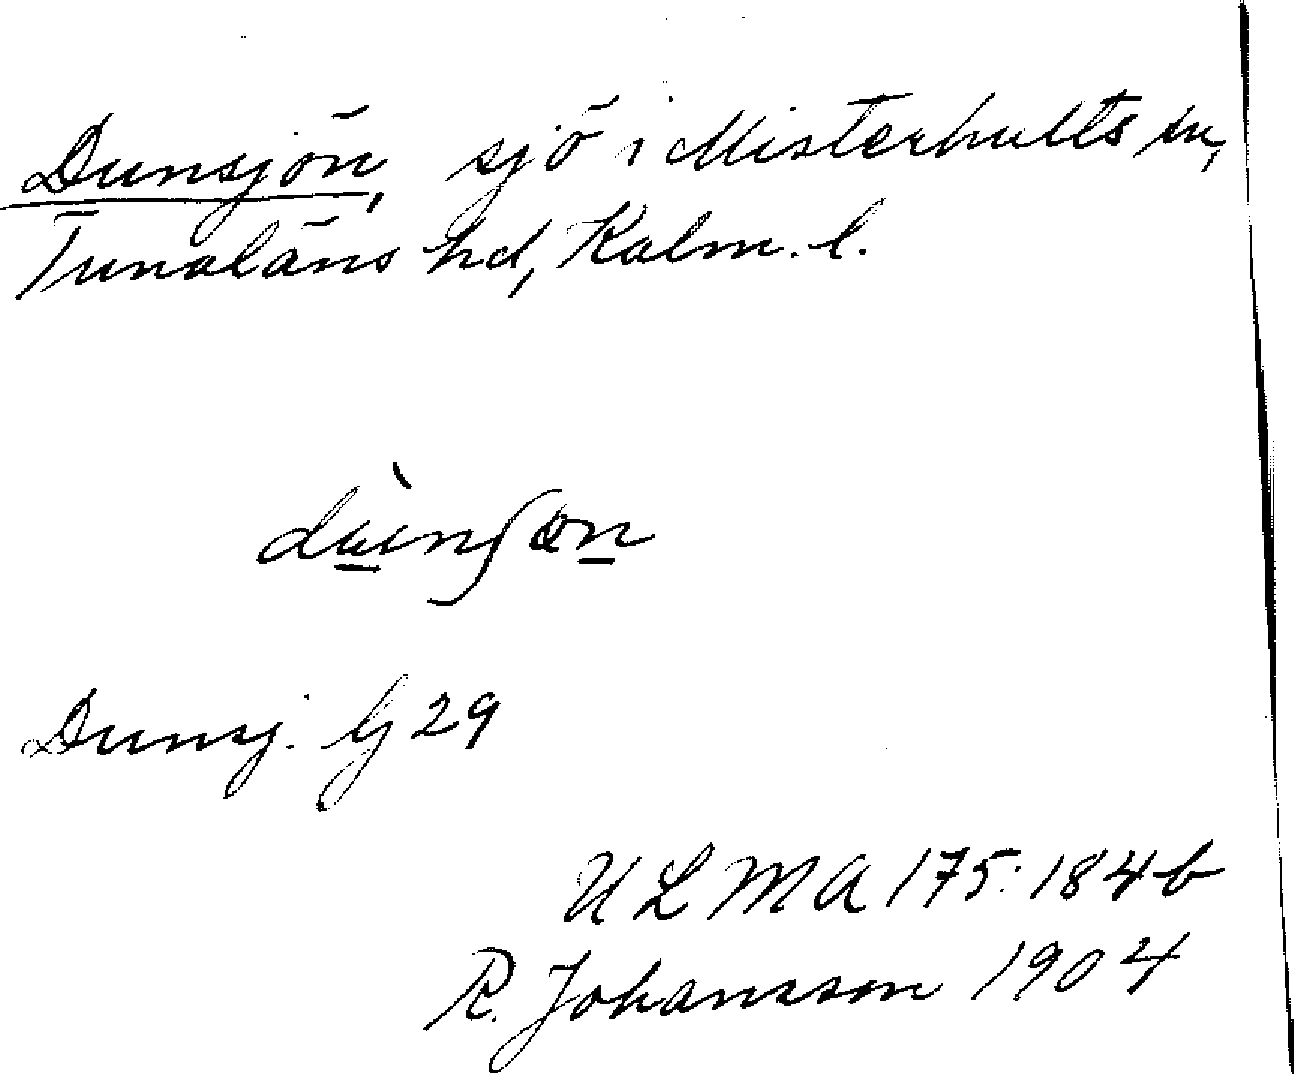 Dunsjön, sjö i Misterhults sn,
Tunaläns hd, Kalm. l.
Dunsj. G 29
ULMA 175:184b
R. Johansson 1904